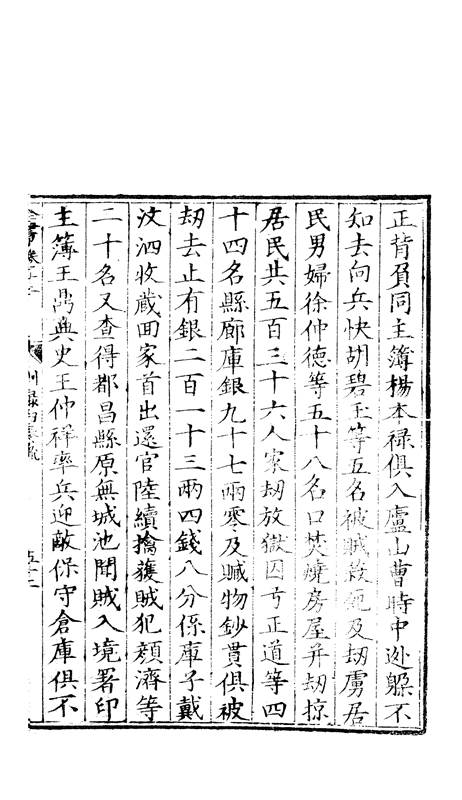 正背負同主簿楊本祿俱入廬山曹時中逃躱不
知去向兵快胡碧玉等五名被賊殺死及刼虜居
民男婦徐仲德等五十八名口焚燒房屋并刼掠
居民共五百三十六人家刼放獄囚亏正道等四
十四名縣廊庫銀九十七兩零及贓物鈔貫俱被
刼去止有銀二百一十三兩四錢八分係庫子戴
汶泗收藏回家首出還官陸續擒獲賊犯顏濟等
二十名又查得都昌縣原無城池聞賊入境署印
主簿王禹典史王仲祥率兵迎敵保守倉庫俱不